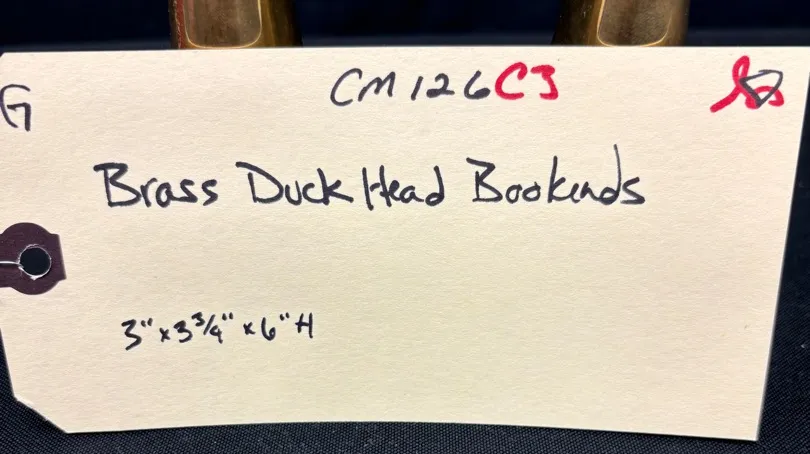 CM126C3
G
Brass Duck Head Bookends
3" x 3 3/4" x 6" H